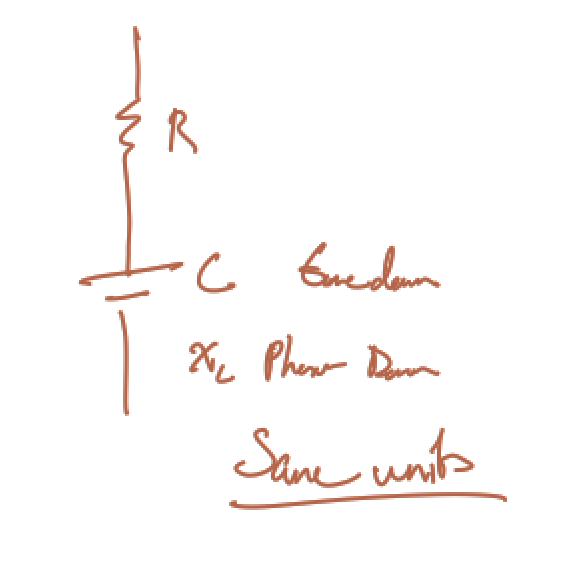 R
C Time domain
Xc Phasor Domain
Same units